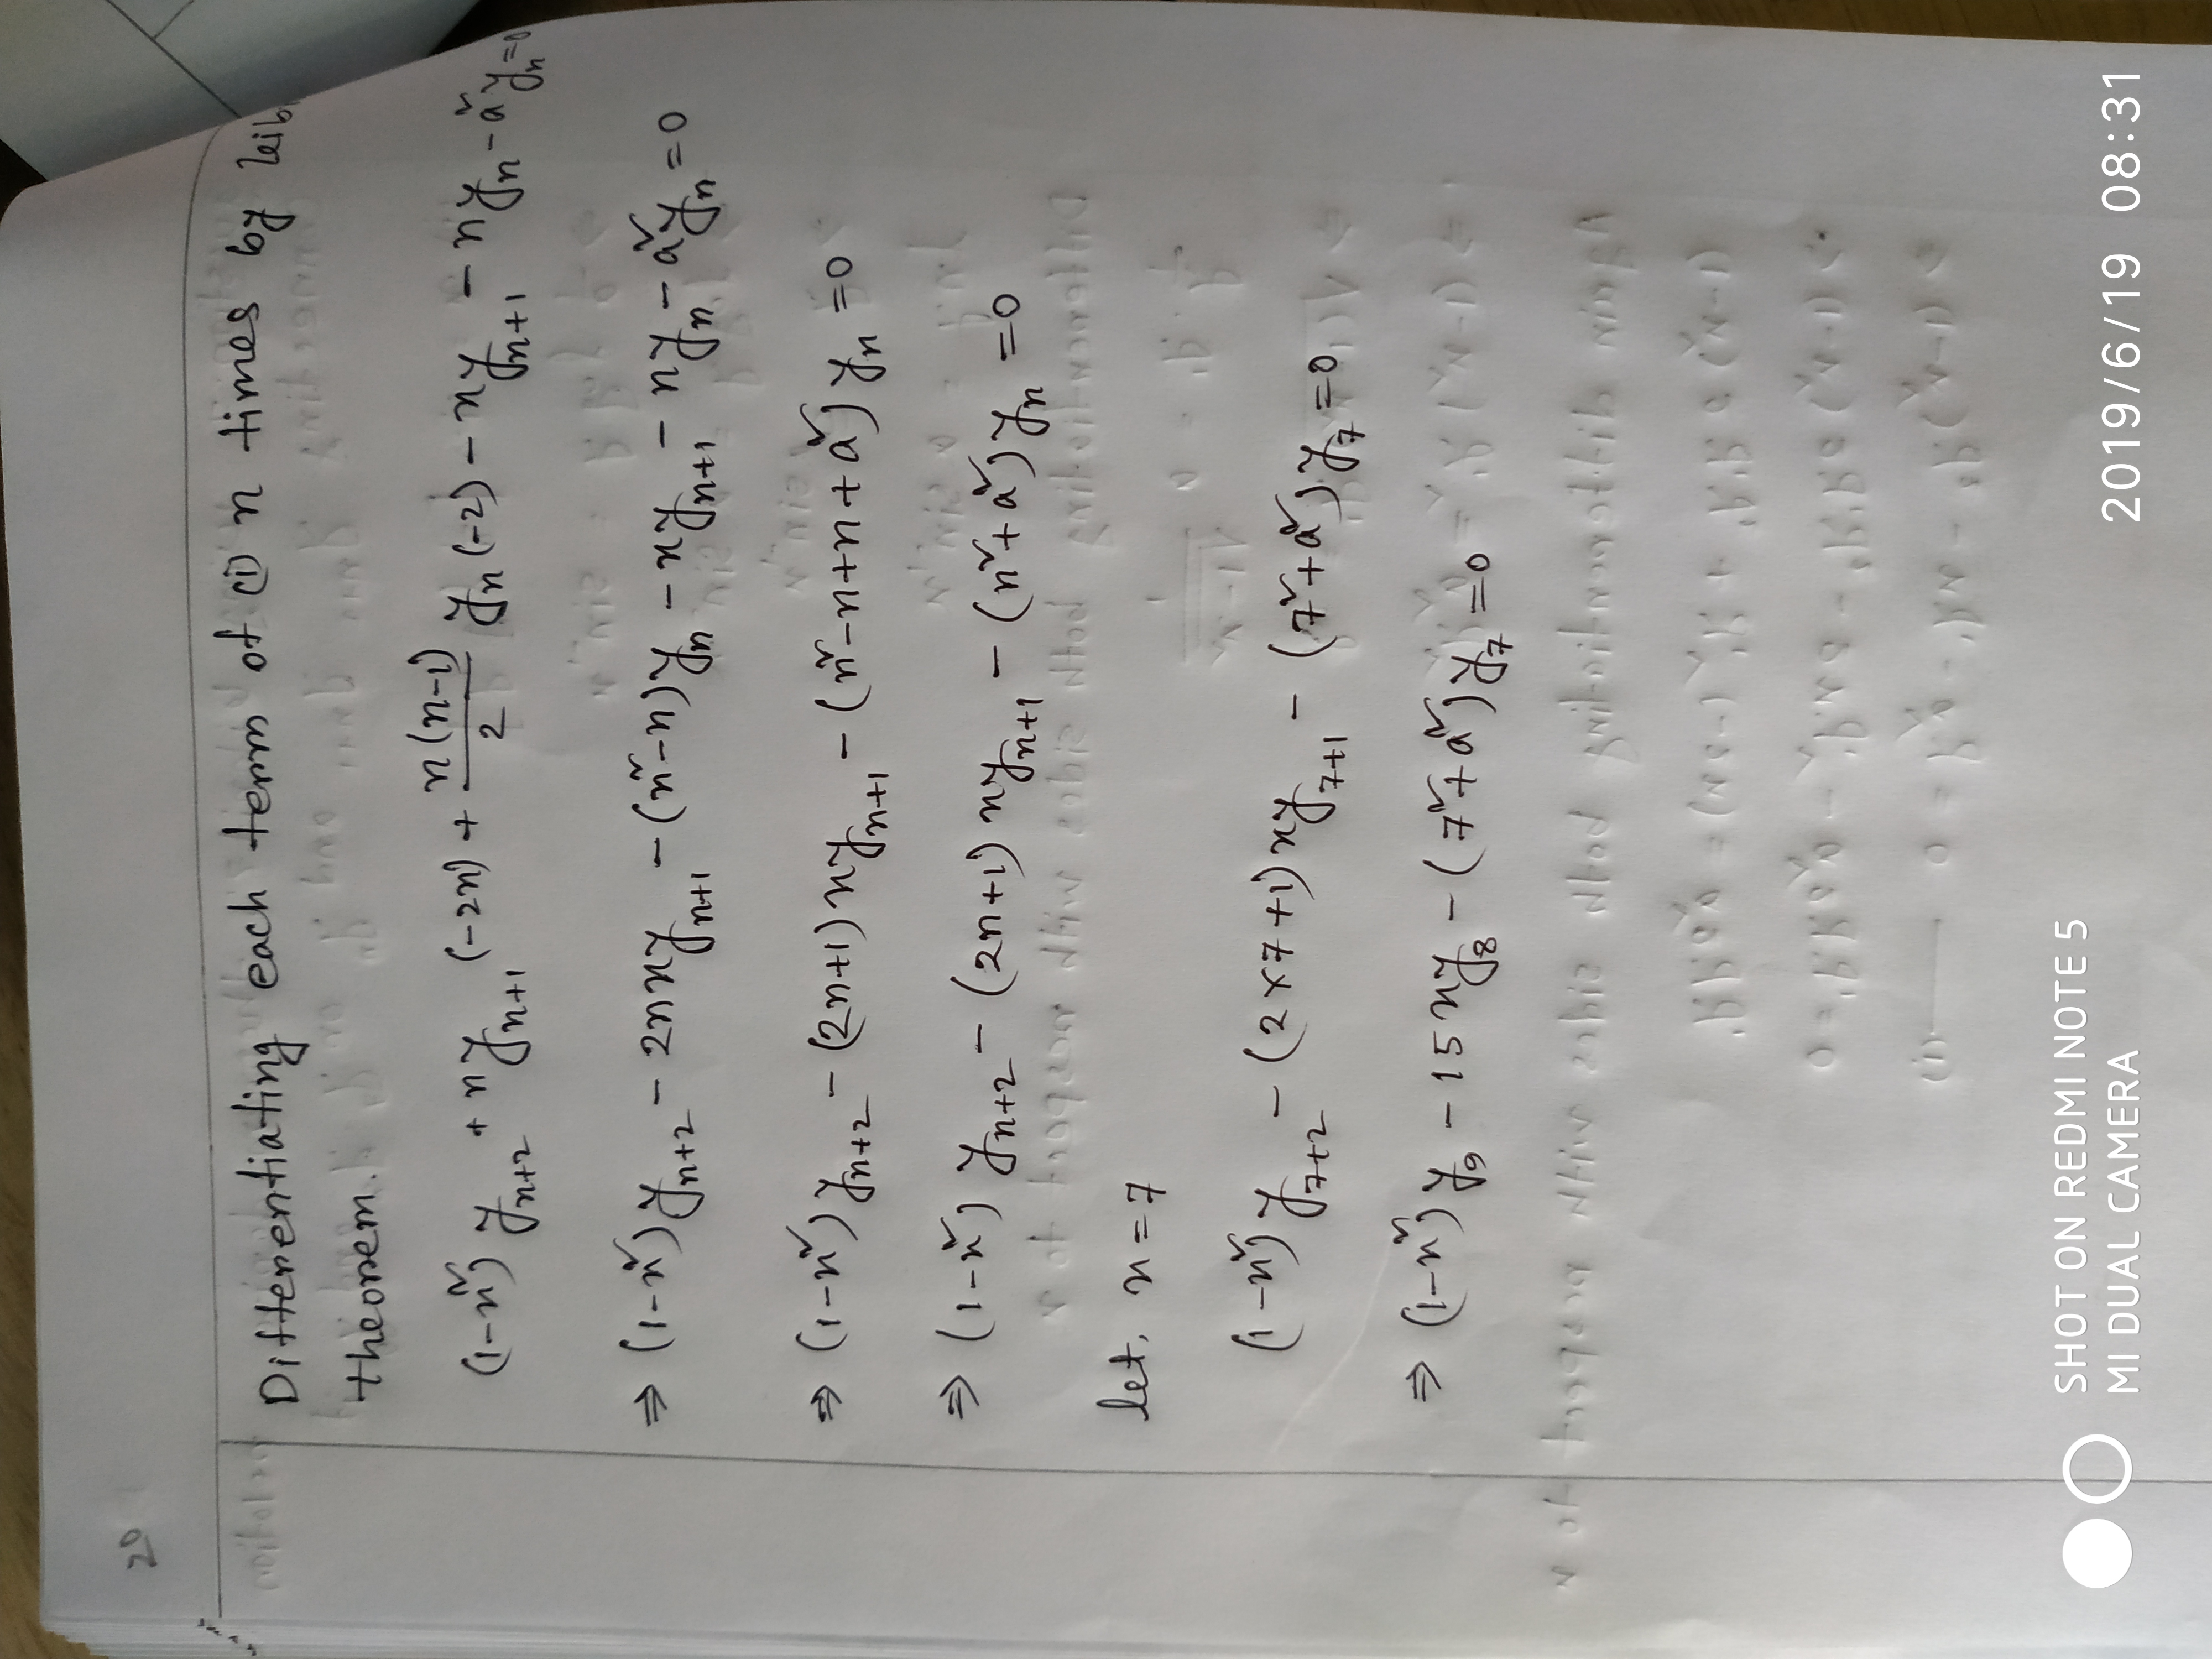 20
Differentiating each term of (i) n times by Leib
theorem.
(1-x²) yₙ₊₂ + nyₙ₊₁ (-2x) + n(n-1)/2 yₙ (-2) - xyₙ₊₁ - nyₙ - a²yₙ=0
⇒ (1-x²)yₙ₊₂ - 2nxyₙ₊₁ - (n²-n)yₙ - xyₙ₊₁ - nyₙ - a²yₙ = 0
⇒ (1-x²)yₙ₊₂ - (2n+1)xyₙ₊₁ - (n²-n+n+a²)yₙ = 0
⇒ (1-x²) yₙ₊₂ - (2n+1) xyₙ₊₁ - (n²+a²)yₙ = 0
let, n = 7
(1-x²)y₇₊₂ - (2×7+1)xy₇₊₁ - (7²+a²)y₇ = 0
⇒ (1-x²)y₉ - 15xy₈ - (7²+a²)y₇ = 0
SHOT ON REDMI NOTE 5
MI DUAL CAMERA
2019/6/19 08:31